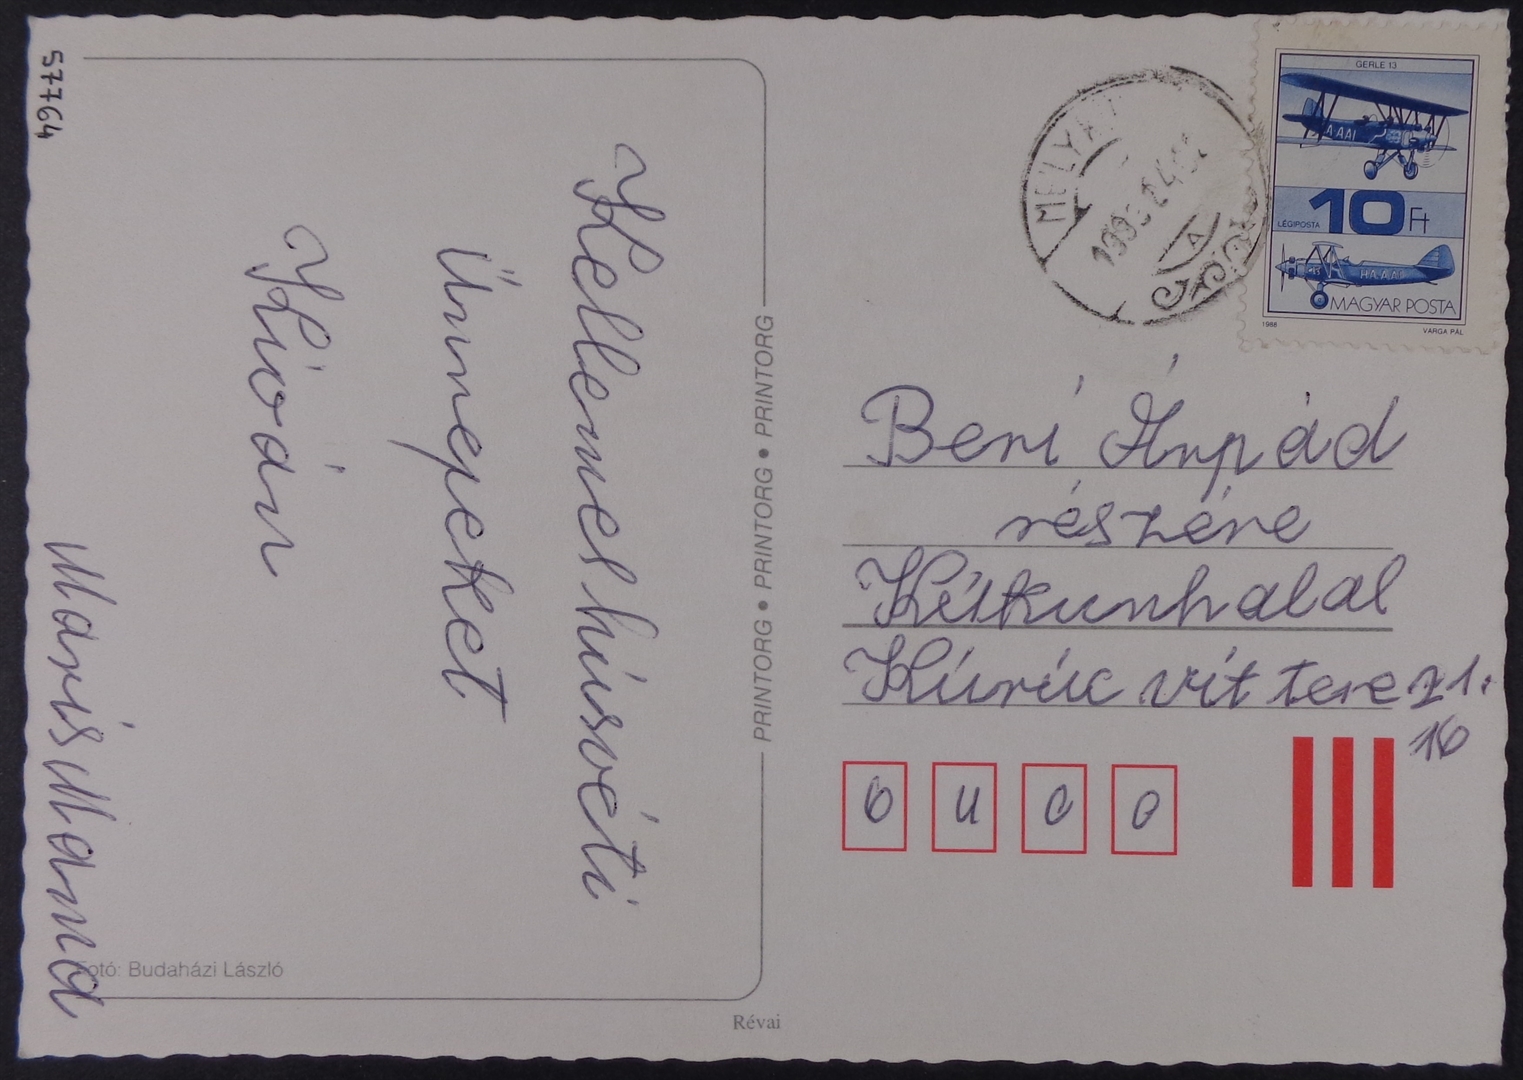 57764
Kellemes húsvéti
Ünnepeket
Kiván
Maris Mama
Fotó: Budaházi László
PRINTORG • PRINTORG • PRINTORG
Révai
GERLE 13
A-AAI
10 Ft
LÉGIPOSTA
HA-AAI
MAGYAR POSTA
1988
VARGA PÁL
Beri Árpád
részére
Kiskunhalas
Kúrúc vit tere 21.
16
6400